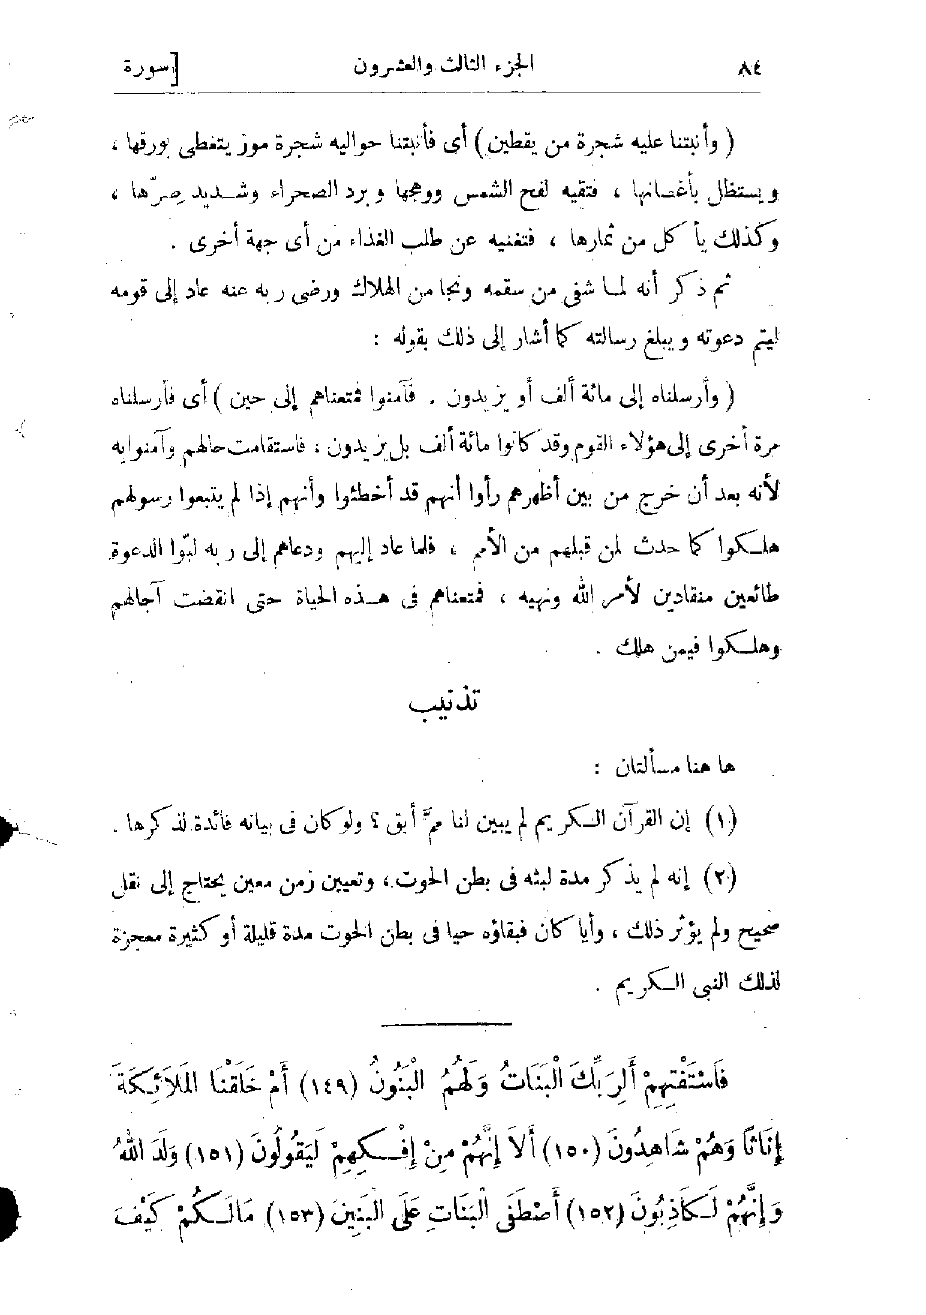 ٨٤ الجزء الثالث والعشرون [سورة
( وأنبتنا عليه شجرة من يقطين ) أى فأنبتنا حواليه شجرة موز يتغطى بورقها ،
ويستظل بأغصانها ، فتقيه لفح الشمس ووهجها وبرد الصحراء وشديد صِرّها ،
وكذلك يأكل من ثمارها ، فتغنيه عن طلب الغذاء من أى جهة أخرى .
ثم ذكر أنه لما شفى من سقمه ونجا من الهلاك ورضى ربه عنه عاد إلى قومه
ليتم دعوته ويبلغ رسالته كما أشار إلى ذلك بقوله :
( وأرسلناه إلى مائة ألف أو يزيدون . فآمنوا فمتعناهم إلى حين ) أى فأرسلناه
مرة أخرى إلى هؤلاء القوم وقد كانوا مائة ألف بل يزيدون ، فاستقامت حالهم وآمنوا به
لأنه بعد أن خرج من بين أظهرهم رأوا أنهم قد أخطئوا وأنهم إذا لم يتبعوا رسولهم
هلكوا كما حدث لمن قبلهم من الأمم ، فلما عاد إليهم ودعاهم إلى ربه لبّوا الدعوة
طائعين منقادين لأمر الله ونهيه ، فمتعناهم فى هذه الحياة حتى انقضت آجالهم
وهلكوا فيمن هلك .
تذنيب
ها هنا مسألتان :
(١) إن القرآن الكريم لم يبين لنا ممَّ أبق ؟ ولو كان فى بيانه فائدة لذكرها .
(٢) إنه لم يذكر مدة لبثه فى بطن الحوت ، وتعيين زمن معين يحتاج إلى نقل
صحيح ولم يؤثر ذلك ، وأيا كان فبقاؤه حيا فى بطن الحوت مدة قليلة أو كثيرة معجزة
لذلك النبى الكريم .
فَاسْتَفْتِهِمْ أَلِرَبِّكَ الْبَنَاتُ وَلَهُمُ الْبَنُونُ (١٤٩) أَمْ خَلَقْنَا المَلَائِكَةَ
إِنَاثًا وَهُمْ شَاهِدُونَ (١٥٠) أَلَا إِنَّهُمْ مِنْ إِفْكِهِمْ لَيَقُولُونَ (١٥١) وَلَدَ اللهُ
وَإِنَّهُمْ لَكَاذِبُونَ (١٥٢) أَصْطَفَى الْبَنَاتِ عَلَى الْبَنِينَ (١٥٣) مَالَكُمْ كَيْفَ